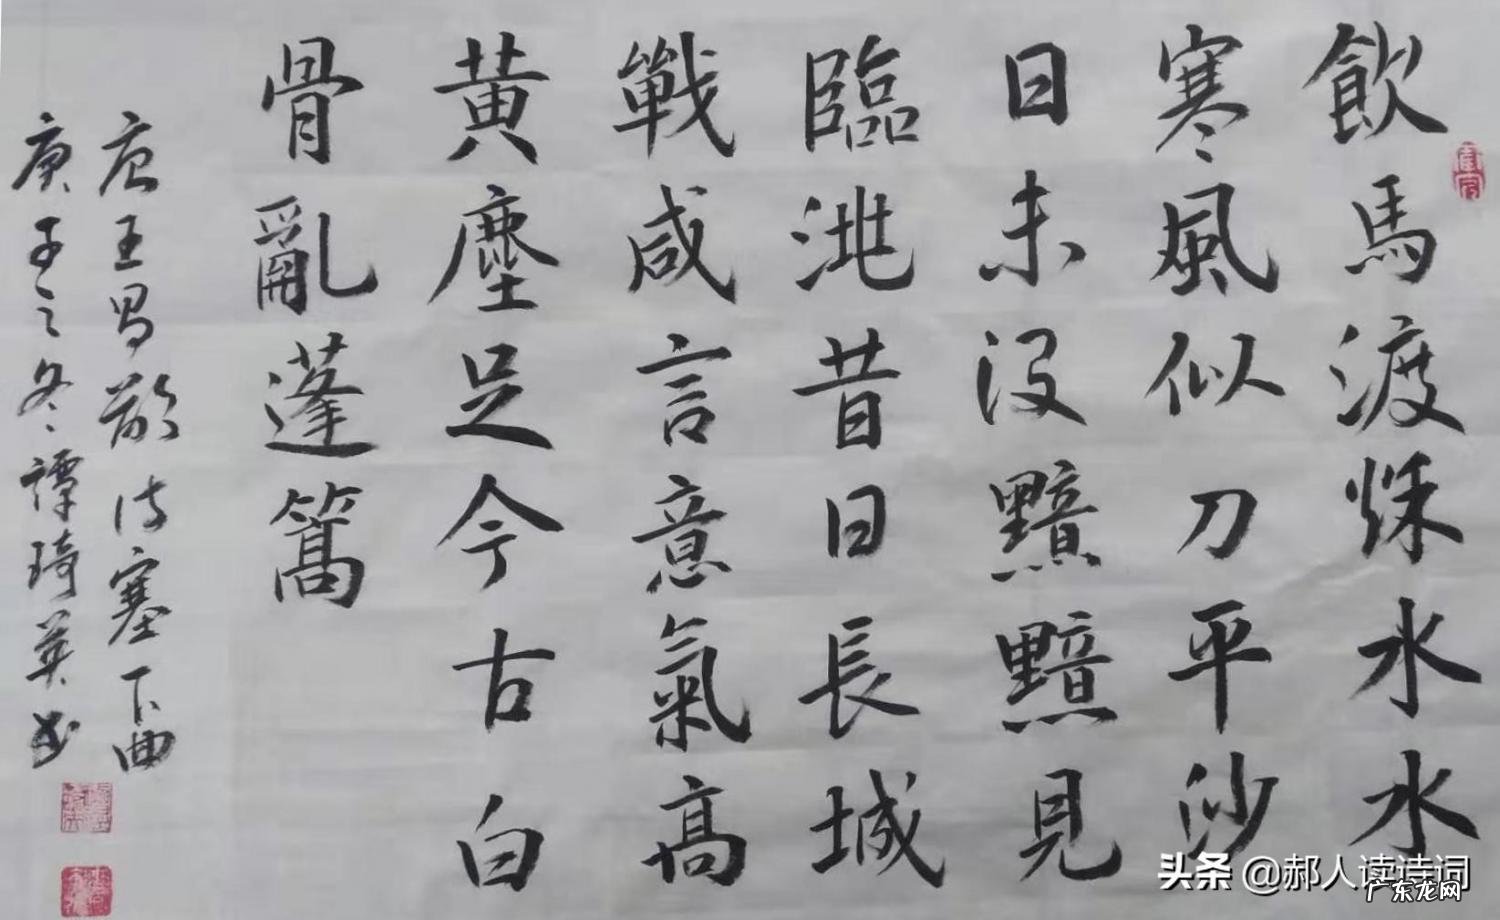 飲馬渡烁水水
寒風似刀平沙
日未没黯黯見
臨洮昔日長城
戰咸言意氣高
黄塵足今古白
骨亂蓬篙
唐王昌龄诗塞下曲
庚子之冬譚琦英书
头条@郝人读诗词
广东龙网